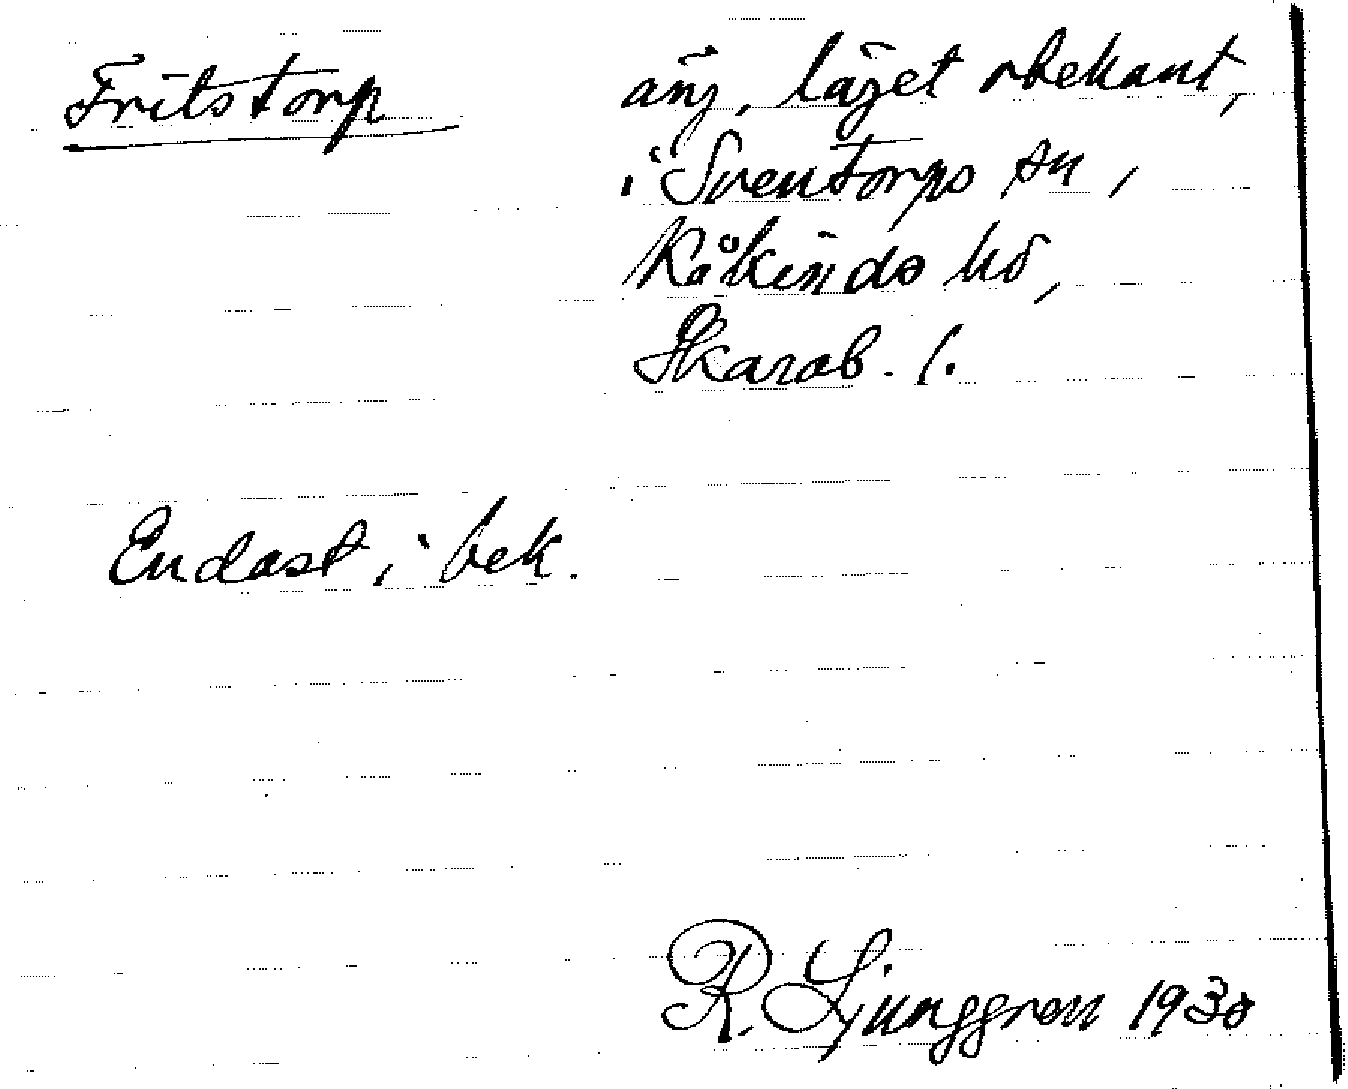 Fritstorp
äng, läget obekant,
i Sventorps sn,
Kåkinds hd,
Skarab. l.
Endast i bek.
R. Ljunggren 1930